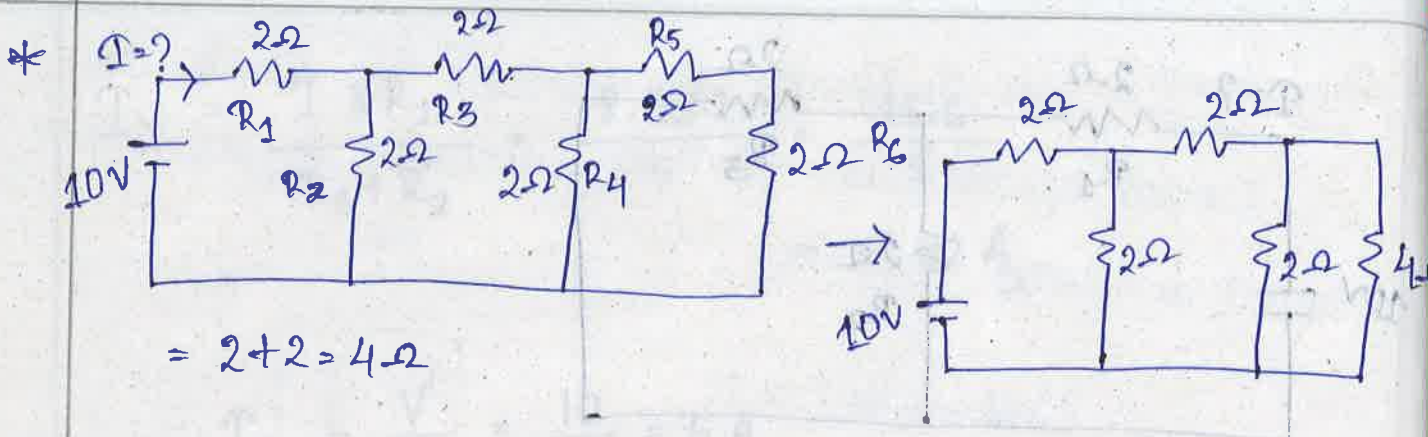 * I=? 2Ω 2Ω R5
R1 R3 2Ω
10V R2 2Ω 2Ω R4 2Ω R6
= 2+2=4Ω
→ 2Ω 2Ω
10V 2Ω 2Ω